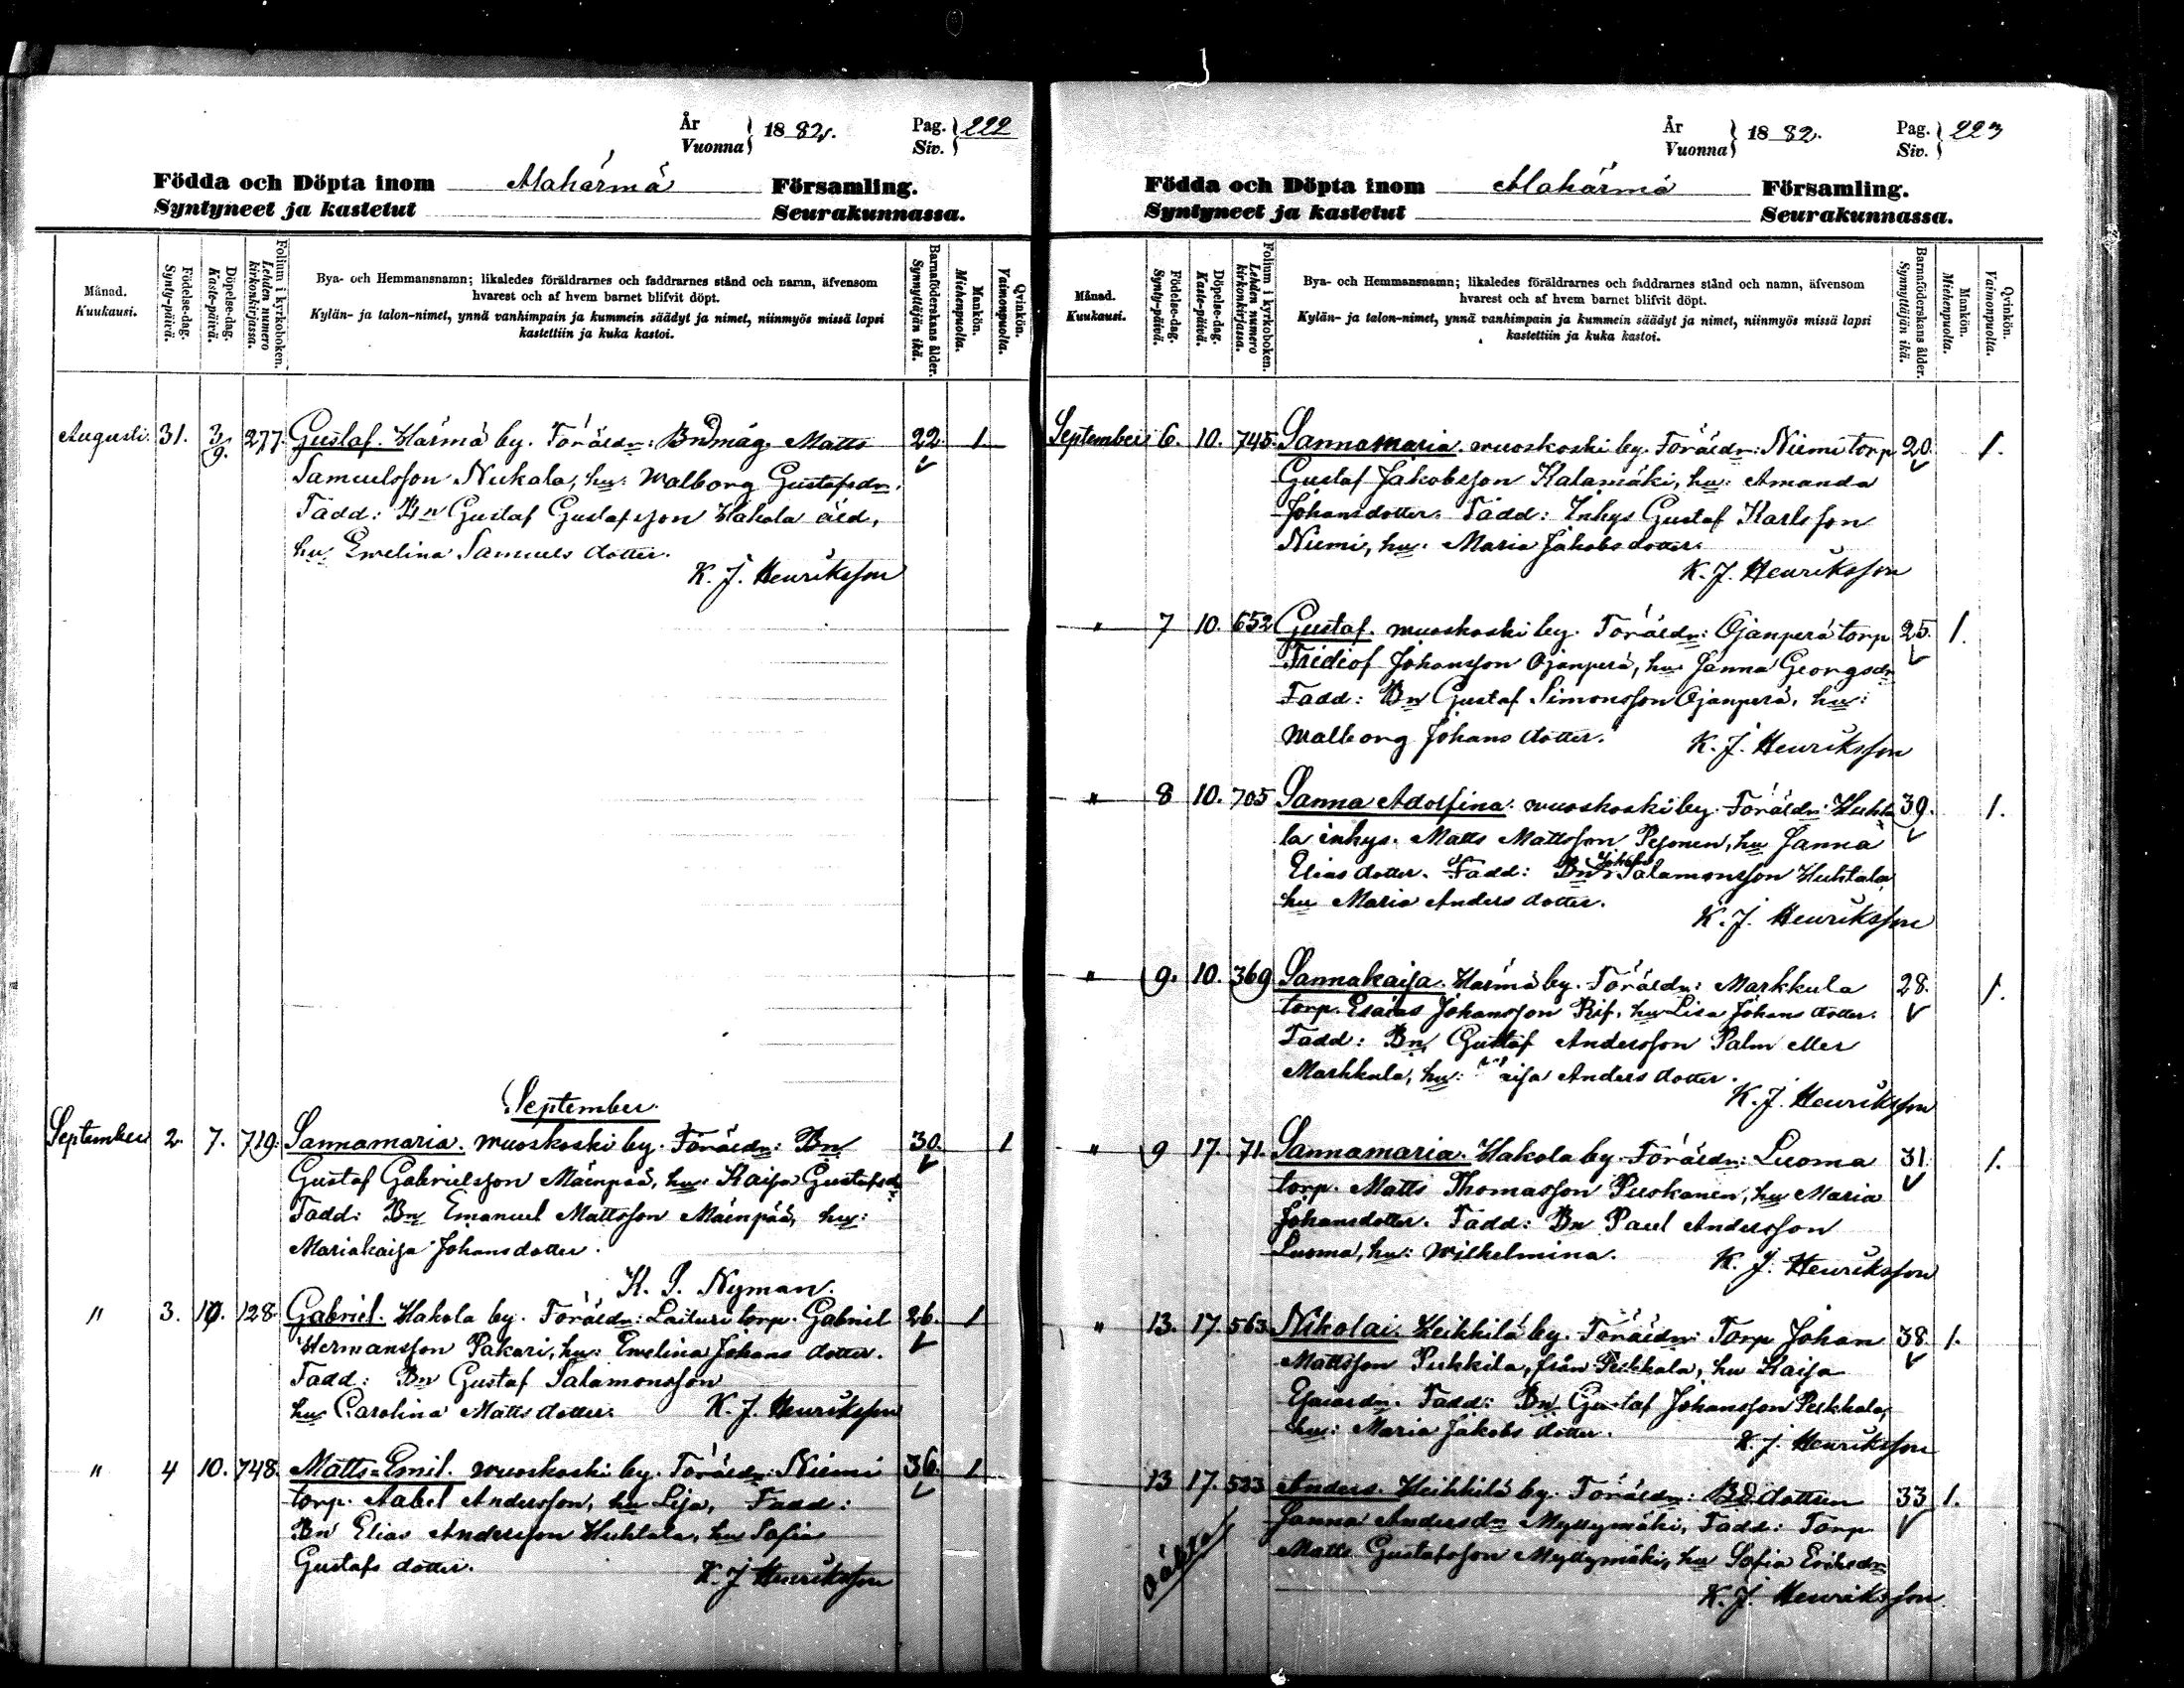 År
Vuonna } 18 82.
Pag.
Siv. } 222
Födda och Döpta inom Alahärmä Församling.
Syntyneet ja kastetut Seurakunnassa.
Månad.
Kuukausi.
Födelse-dag.
Synty-päivä.
Döpelse-dag.
Kaste-päivä.
Folium i kyrkoboken.
Lehden numero kirkonkirjassa.
Bya- och Hemmansnamn; likaledes föräldrarnes och faddrarnes stånd och namn, äfvensom
hvarest och af hvem barnet blifvit döpt.
Kylän- ja talon-nimet, ynnä vanhimpain ja kummein säädyt ja nimet, niinmyös missä lapsi
kastettiin ja kuka kastoi.
Barnaföderskans ålder.
Synnyttäjän ikä.
Mankön.
Miehenpuolta.
Qvinkön.
Vaimonpuolta.
Augusti. 31. 3/9. 277. Gustaf. Härmä by. Föräldr: Bndmåg Matts 22. 1
Samuelsson Nukala, hu: Walborg Gustafsdr.
Fadd: Bn Gustaf Gustafsson Hakola äld,
hu Emelina Samuels dotter.
K. J. Henriksson
September.
September 2 7. 719. Sannamaria. wuoskoski by. Föräldr: Bn 30. 1
Gustaf Gabrielsson Mäenpää, hu: Kaisa Gustafsdr
Fadd: Bn Emanuel Mattsson Mäenpää, hu:
Mariakaisa Johansdotter.
K. P. Nyman.
" 3. 10. 128. Gabriel. Hakola by. Föräldr: Laituri torp. Gabriel 26. 1
Hermansson Pakari, hu: Emelina Johans dotter.
Fadd: Bn Gustaf Salamonsson
hu Carolina Matts dotter. K. J. Henriksson
" 4 10. 748. Matts-Emil. wuoskoski by. Föräldr: Niemi 36. 1
torp. Aabel Andersson, hu Lisa, Fadd:
Bn Elias Andersson Huhtala, hu Sofia
Gustafs dotter. K. J Henriksson
År
Vuonna } 18 82.
Pag.
Siv. } 223
Födda och Döpta inom Alahärmä Församling.
Syntyneet ja kastetut Seurakunnassa.
Månad.
Kuukausi.
Födelse-dag.
Synty-päivä.
Döpelse-dag.
Kaste-päivä.
Folium i kyrkoboken.
Lehden numero kirkonkirjassa.
Bya- och Hemmansnamn; likaledes föräldrarnes och faddrarnes stånd och namn, äfvensom
hvarest och af hvem barnet blifvit döpt.
Kylän- ja talon-nimet, ynnä vanhimpain ja kummein säädyt ja nimet, niinmyös missä lapsi
kastettiin ja kuka kastoi.
Barnaföderskans ålder.
Synnyttäjän ikä.
Mankön.
Miehenpuolta.
Qvinkön.
Vaimonpuolta.
September 6. 10. 745. Sannamaria. wuoskoski by. Föräldr: Niemi torp 20. 1.
Gustaf Jakobsson Kalamäki, hu: Amanda
Johansdotter. Fadd: Inhys Gustaf Karlsson
Niemi, hu: Maria Jakobs dotter.
K. J. Henriksson
" 7 10. 652 Gustaf. wuoskoski by. Föräldr: Ojanperä torp 25. 1.
Fridiof Johansson Ojanperä, hu Sanna Georgsdr
Fadd: Bn Gustaf Simonsson Ojanperä, hu:
Walborg Johans dotter. K. J. Henriksson
" 8 10. 705 Sanna Adolfina. wuoskoski by. Föräldr: Huhta 39. 1.
la inhys. Matts Mattsson Pesonen, hu Sanna
Elias dotter. Fadd: Bn Salamonsson Huhtala
hu Maria Anders dotter.
K. J. Henriksson
" 9. 10. 369 Sannakaisa. Härmä by. Föräldr: Markkula 28. 1.
torp. Esaias Johansson Rif, hu Lisa Johans dotter.
Fadd: Bn Gustaf Andersson Palm eller
Markkula, hu: Anders dotter.
K. J. Henriksson
" 9 17. 71. Sannamaria. Hakola by. Föräldr: Luoma 31 1.
torp. Matts Thomasson Puskanen, hu Maria
Johansdotter. Fadd: Bn Paul Andersson
Luoma, hu: Wilhelmina. K. J. Henriksson
" 13. 17. 563 Nikolai. Heikkilä by. Föräldr: Torp Johan 38 1.
Mattsson Pukkila, från Pukkala, hu Kaisa
Esaiasdr. Fadd: Bn Gustaf Johansson Pukkala,
hu: Maria Jakobs dotter.
K. J. Henriksson
13 17. 523 Anders. Heikkilä by. Föräldr: Bd dottern 33 1.
Sanna Andersdr Myllymäki, Fadd: Torp
oäkta
Matts Gustafsson Myllymäki, hu Sofia Eriksdr
K. J. Henriksson